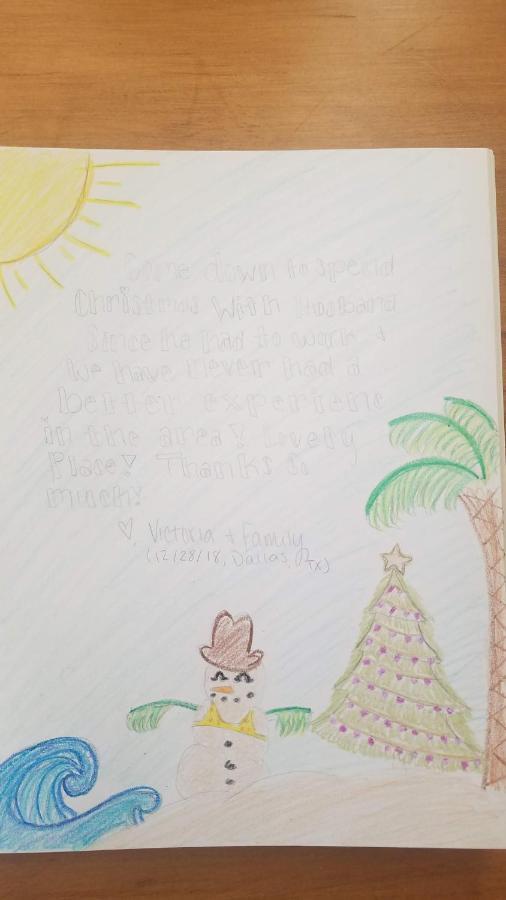 Come down to spend
Christmas With Husband
Since he had to work +
We have never had a
better experiene
in the area! Lovely
Place! Thanks so
much!
♡, Victoria + Family
(12/28/18, Dallas, TX)